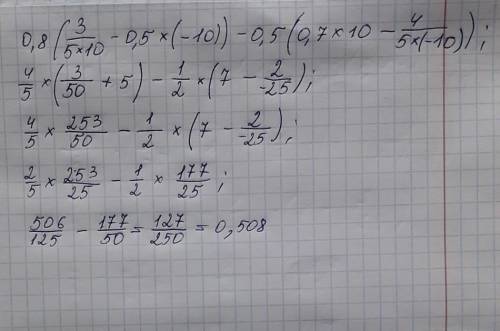 0,8(3/(5×10) - 0,5×(-10)) - 0,5(0,7×10 - 4/(5×(-10)));
4/5 × (3/50 + 5) - 1/2 × (7 - 2/-25);
4/5 × 253/50 - 1/2 × (7 - 2/-25);
2/5 × 253/25 - 1/2 × 177/25;
506/125 - 177/50 = 127/250 = 0,508